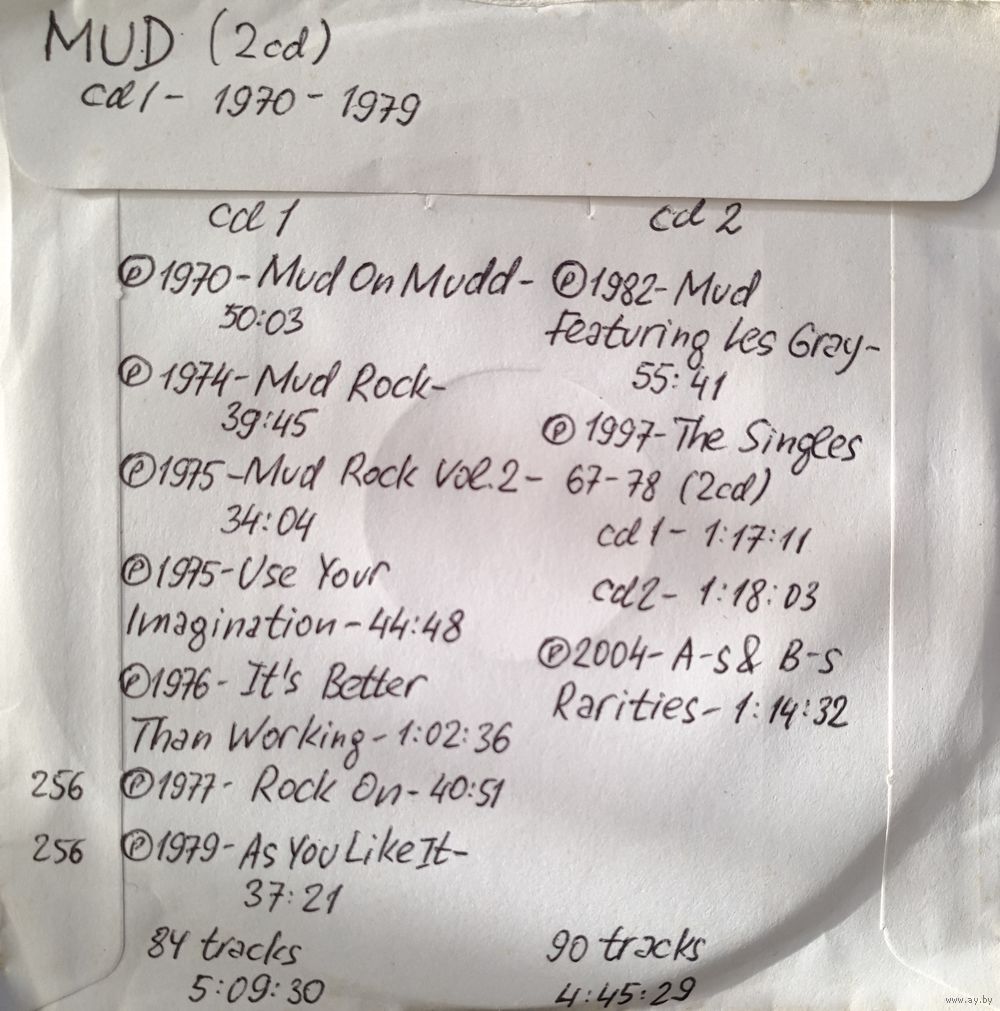 MUD (2cd)
cd1- 1970-1979
cd 1
℗1970-Mud On Mudd-
50:03
℗ 1974-Mud Rock-
39:45
℗1975-Mud Rock Vol.2-
34:04
℗1975-Use Your
Imagination-44:48
℗1976- It's Better
Than Working-1:02:36
256 ℗1977- Rock On-40:51
256 ℗1979-As You Like It-
37:21
84 tracks
5:09:30
cd 2
℗1982-Mud
Featuring Les Gray-
55:41
℗ 1997-The Singles
67-78 (2cd)
cd1- 1:17:11
cd2- 1:18:03
℗2004- A-s & B-s
Rarities-1:14:32
90 tracks
4:45:29
www.ay.by